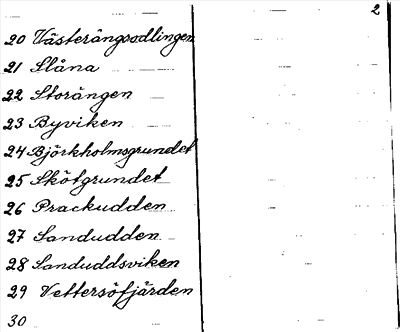 2
20 Västerängsodlingen
21 Slåna
22 Storängen
23 Byviken
24 Björkholmsgrundet
25 Skötgrundet
26 Prackudden
27 Sandudden
28 Sanduddsviken
29 Vettersöfjärden
30